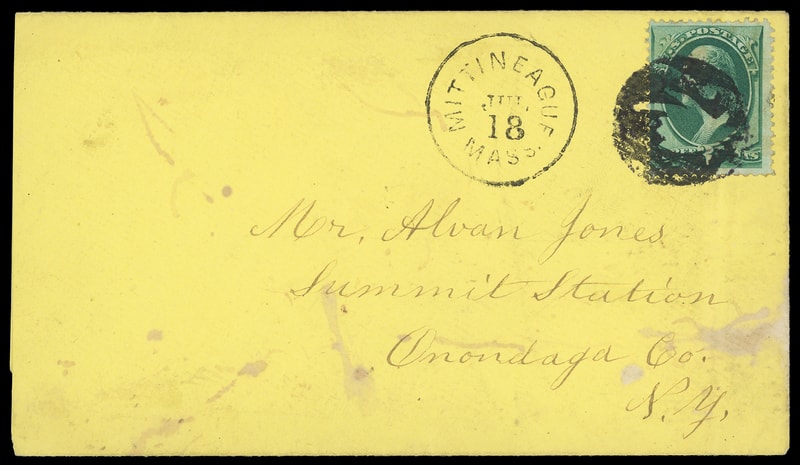 MITTINEAGUE
JUL
18
MASS.
U.S. POSTAGE
Mr. Alvan Jones
Summit Station
Onondaga Co.
N.Y.